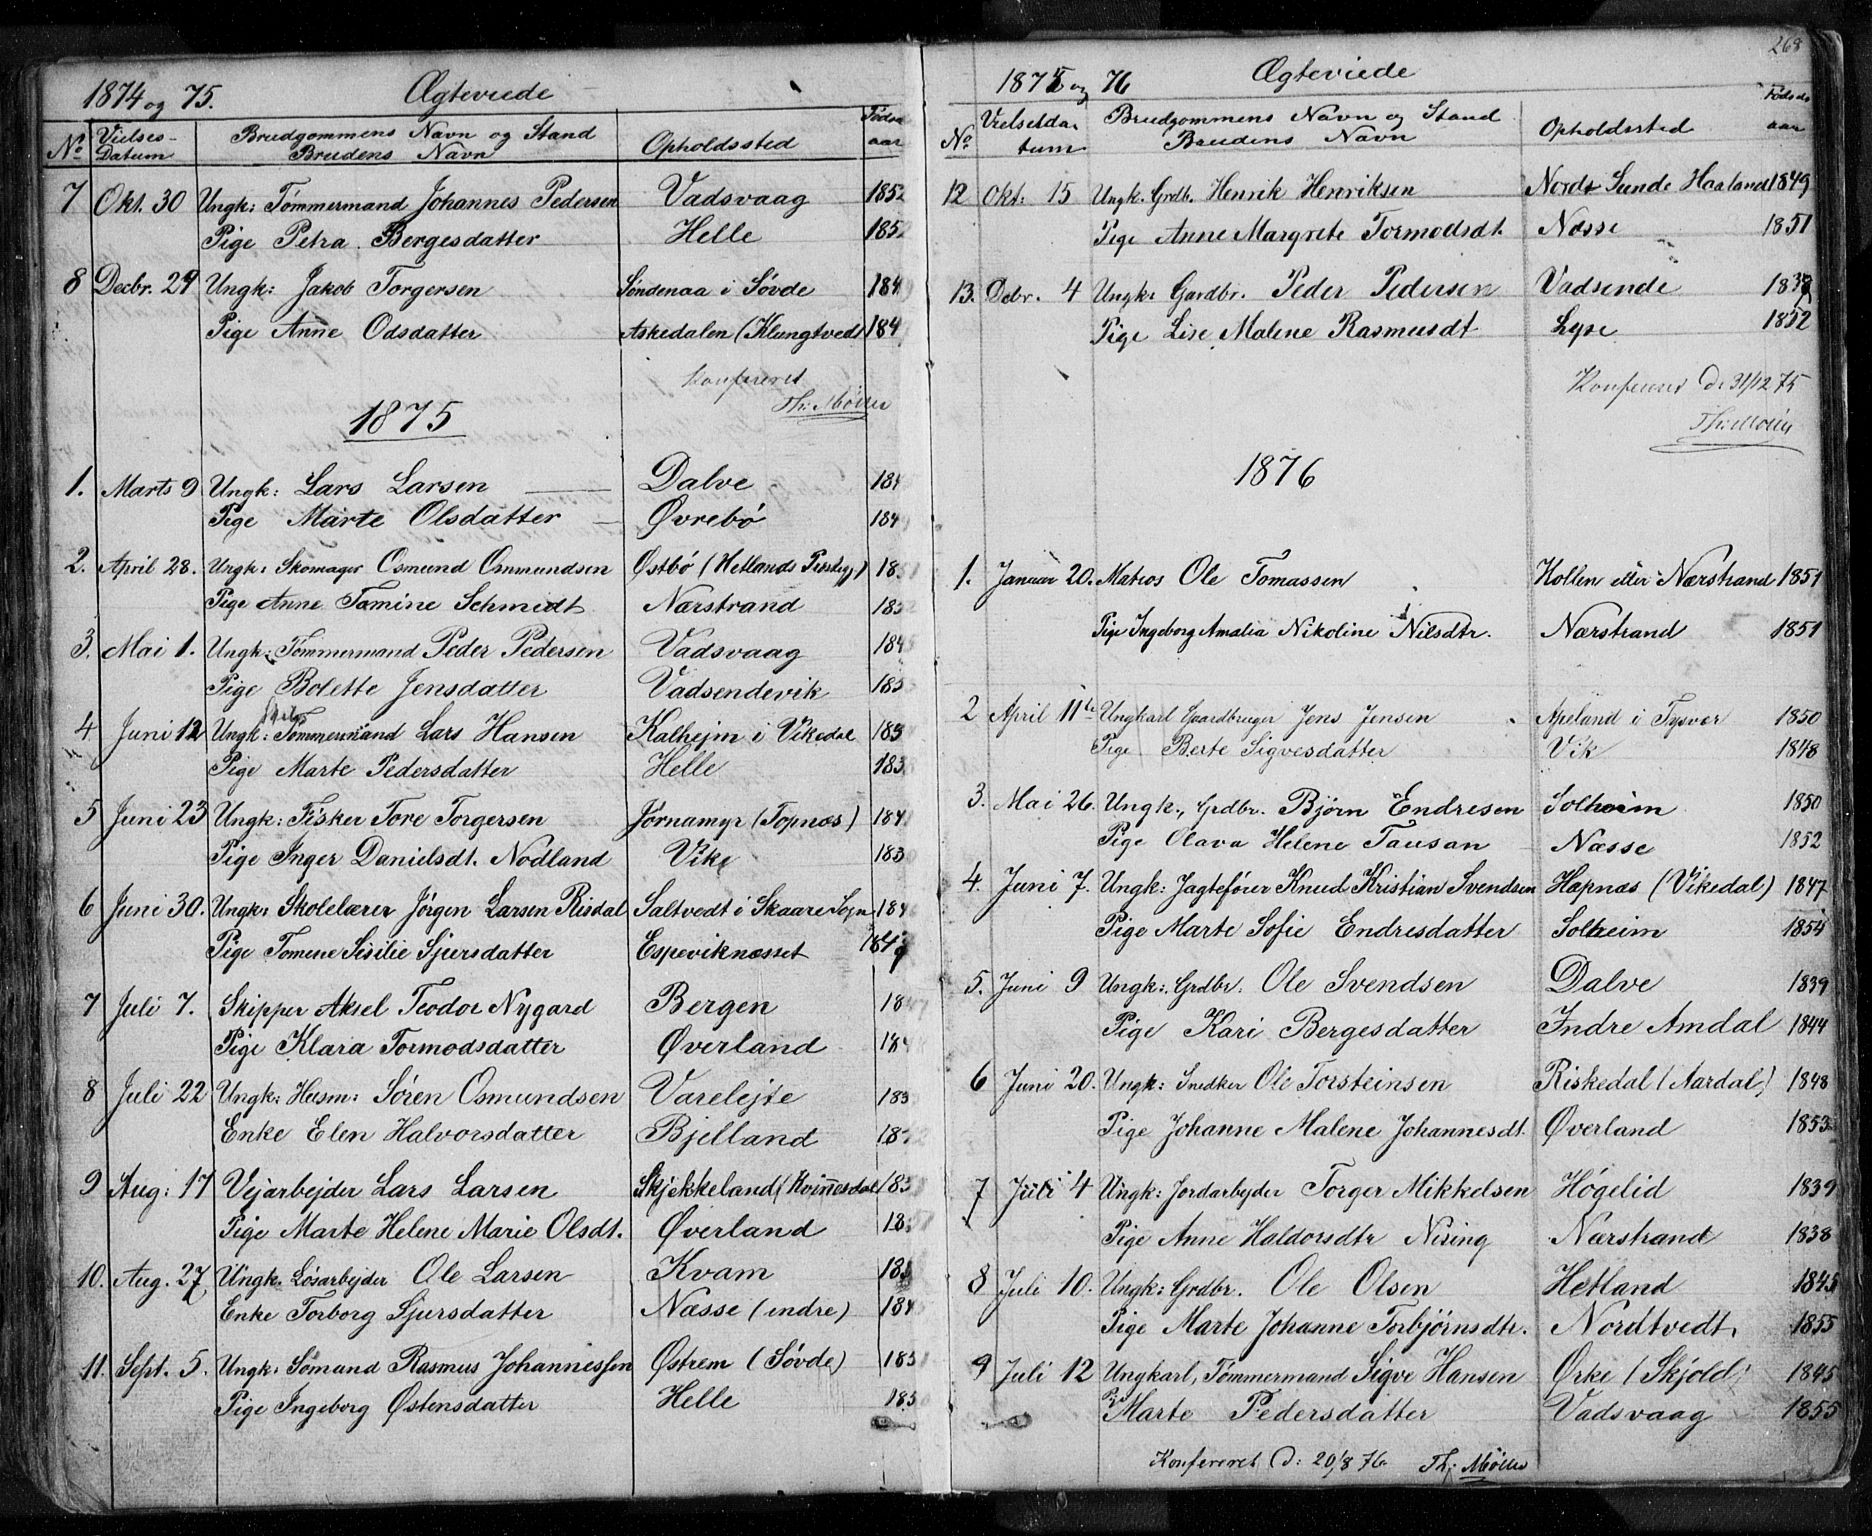 1874 og 75. Ægteviede
No Vielses-Datum Brudgommens Navn og Stand Brudens Navn Opholdssted Fødsels aar
7 Okt. 30 Ungk: Tømmermand Johannes Pedersen Vadsvaag 1852
Pige Petra Bergesdatter Helle 185
8 Decbr. 29 Ungk: Jakob Torgersen Søndenaa i Søvde 184
Pige Anne Odsdatter Askedalen (Klungtvedt 184
Konfereret
Th: Møller
1875
1. Marts 9 Ungk: Lars Larsen Dalve 184
Pige Marte Olsdatter Øvrebø 184
2. April 28. Ungk: Skomager Osmund Osmundsen Østbø (Hetlands Prstgj) 18
Pige Anne Tomine Schmidt Nærstrand 185
3. Mai 1. Ungk: Tømmermand Peder Pedersen Vadsvaag 184
Pige Bolette Jensdatter Vadsendevik 185
4 Juni 12 Ungk: Tømmermand Lars Hansen Kalhejm i Vikedal 185
Pige Marte Pedersdatter Helle 185
5 Juni 23 Ungk: Fisker Tore Torgersen Jørnamyr (Topnæs) 184
Pige Inger Danielsdt. Nodland Vike 185
6 Juni 30. Ungk: Skolelærer Jørgen Larsen Risdal Saltvedt i Skaare Sogn 184
Pige Tomene Sisilie Sjursdatter Espeviknæsset 1849
7 Juli 7. Skipper Aksel Teodor Nygard Bergen 1847
Pige Klara Tormodsdatter Øverland 184
8 Juli 22 Ungk: Husm: Søren Osmundsen Varelejte 183
Enke Elen Halvorsdatter Bjelland 18
9 Aug: 17 Vejarbejder Lars Larsen Skjekkeland (Kvinnesdal 185
Pige Marte Helene Marie Olsdt. Øverland 185
10. Aug. 27 Ungk. Løsarbejder Ole Larsen Kvam 18
Enke Torborg Sjursdatter Næsse (indre) 184
11. Sept. 5. Ungk: Sømand Rasmus Johannessen Østrem (Søvde) 185
Pige Ingeborg Østensdatter Helle 185
268
1875 og 76 Ægteviede
No Vielsesda-tum Brudgommens Navn og Stand Brudens Navn Opholdssted Fødsels aar
12 Okt: 15 Ungk. Grdb. Henrik Henriksen Nordr Sunde Haaland 1849
Pige Anne Margrete Tormodsdt. Næsse 1851
13. Debr. 4 Ungk: Gardbr. Peder Pedersen Vadsende 1837
Pige Lise Malene Rasmusdt Lyse 1852
Konfereret D. 31/12 75
Th: Møller
1876
1. Januar 20. Matros Ole Tomassen Kollen eller Nærstrand 1851
Pige Ingeborg Amalia Nikoline Nilsdtr. Nærstrand 1851
2 April 11te Ungkarl Gaardbruger Jens Jensen Apeland i Tysvær 1850
Pige Berte Sigvesdatter Vik 1848
3. Mai 26. Ungk., Grdbr. Bjørn Endresen Solheim 1850
Pige Olava Helene Tausan Næsse 1852
4. Juni 7. Ungk: Jagtefører Knud Kristian Svendsen Hapnæs (Vikedal) 1847
Pige Marte Sofie Endresdatter Solheim 1854
5. Juni 9 Ungk: Grdbr. Ole Svendsen Dalve 1839
Pige Kari Bergesdatter Indre Amdal 1844
6 Juni 20. Ungk: Snedker Ole Torsteinsen Riskedal (Aardal) 1848
Pige Johanne Malene Johannesdt. Øverland 1853
7 Juli 4 Ungk: Jordarbejder Torger Mikkelsen Høgelid 1839
Pige Anne Haldorsdtr Nising Nærstrand 1838
8 Juli 10. Ungk: Grdbr. Ole Olsen Hetland 1845
Pige Marte Johanne Torbjørnsdtr. Nordtvedt. 1855
9 Juli 12 Ungkarl, Tømmermand Sigve Hansen Ørke (Skjold) 1845
Pi Marte Pedersdatter Vadsvaag 1855
Konfereret D: 20/8 76 Th: Møller